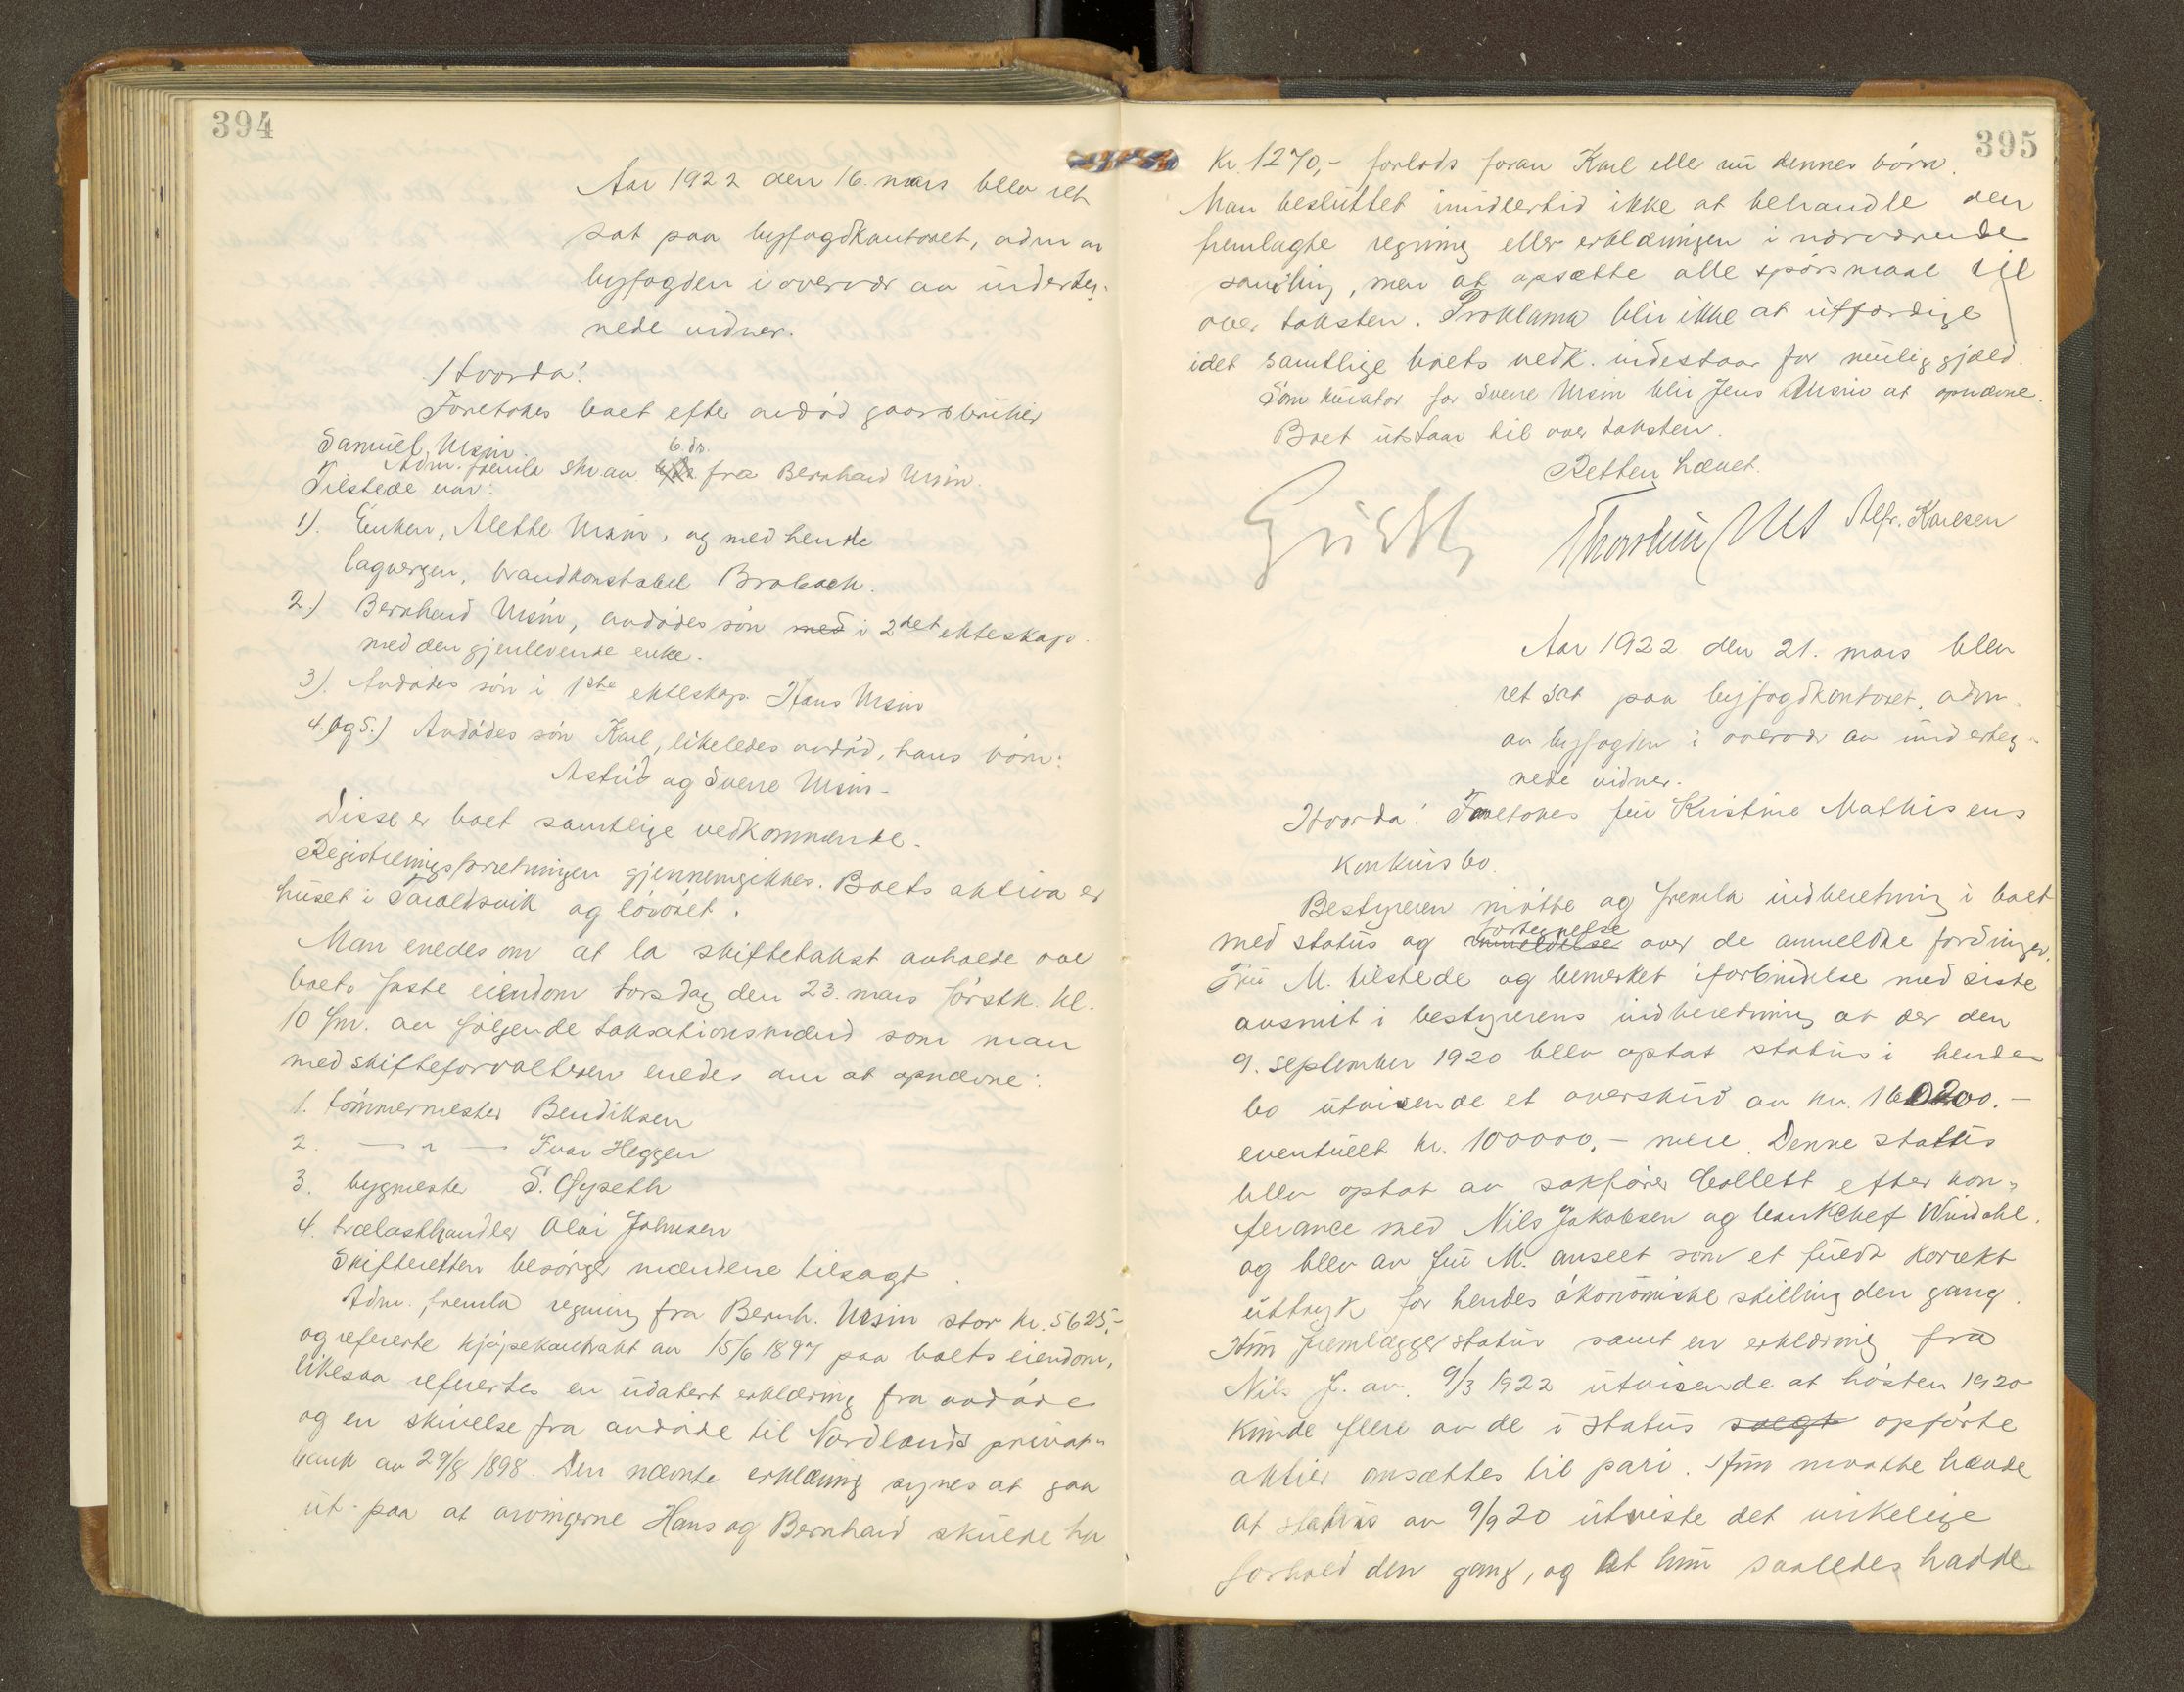 394
Aar 1922 den 16. mars blev ret
sat paa byfogdkontoret, adm av
byfogden i overvær av underteg-
nede vidner.
Hvorda:
Foretokes boet efter avdød gaardbruker
Samuel Ursin.
6 ds.
Adm. fremla skr av fra Bernhard Ursin.
Tilstede var:
1). Enken, Alette Ursin, og med hende
lagvergen, brandkonstabel Brobach.
2.) Bernhard Ursin, avdødes søn med i 2det ekteskap
med den gjenlevende enke.
3). Avdødes søn i 1ste ekteskap Hans Ursin
4.) og 5.) Avdødes søn Karl, likeledes avdød, hans børn:
Astrid og Sverre Ursin-
Disse er boet samtlige vedkommende.
Registreringsforretningen gjennemgikkes. Boets aktiva er
huset i Taraldsvik og løsøret.
Man enedes om at la skiftetakst avholde over
boets faste eiendom torsdag den 23. mars førstk. kl.
10 fm. av følgende taksationsmænd som man
med skifteforvalteren enedes om at opnævne:
1. tømmermester Bendiksen
2. — " — Ivar Heggen
3. bygmester S. Gyseth
4. trælasthandler Olai Johnsen
Skifteretten besørger mændene tilsagt.
Adm. fremla regning fra Bernh. Ursin stor kr. 5625,-
og refererte kjøpekontrakt av 15/6 1897 paa boets eiendom,
likesaa refertes en udatert erklæring fra avdøde
og en skrivelse fra avdøde til Nordlands privat-
bank av 29/8 1898. Den nævnte erklæring synes at gaa
ut paa at arvingerne Hans og Bernhard skulde ha
395
Kr. 1270,- forlods foran Karl elle nu dennes børn.
Man besluttet imidlertid ikke at behandle den
fremlagte regning eller erklæringen i nærværende
samling, men at opsætte alle spørsmaal til
over taksten. Proklama blir ikke at utfærdige
idet samtlige boets vedk. indestaar for mulig gjæld.
Som kurator for Sverre Ursin blir Jens Ursin at opnævne.
Boet utstaar til over taksten.
Retten hævet.
Alfr. Karlsen
Aar 1922 den 21. mars blev
ret sat paa byfogdkontoret, adm.
av byfogden i overvær av underteg-
nede vidner.
Hvorda: Foretokes fru Kristine Mathisens
konkursbo.
Bestyreren møtte og fremla indberetning i boet
fortegnelse
med status og anmeldelse over de anmeldte fordringer.
Fru M. tilstede og bemerket i forbindelse med siste
avsnit i bestyrerens indberetning at der den
9. september 1920 blev optat status i hendes
bo utvisende et overskud av kr. 160200.-
eventuelt kr. 100000.- mere. Denne status
blev optat av sakfører Collett efter kon-
ferance med Nils Jakobsen og bankchef Windahl.
og blev av fru M. anseet som et fuldt korrekt
uttryk for hendes økonomiske stilling den gang.
Hun fremlægger status samt en erklæring fra
Nils J. av 9/3 1922 utvisende at høsten 1920
kunde flere av de i status solgt opførte
aktier omsættes til pari. Hun maatte hævde
at status av 9/9 20 utviste det virkelige
forhold den gang, og at hun saaledes hadde